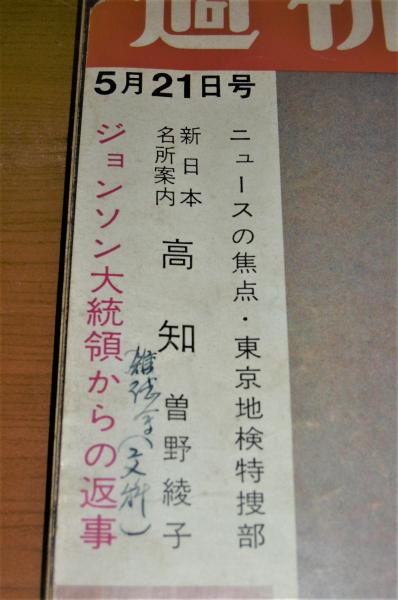 週刊
5月21日号
ニュースの焦点・東京地検特捜部
新日本
名所案内
高知 曽野綾子
ジョンソン大統領からの返事